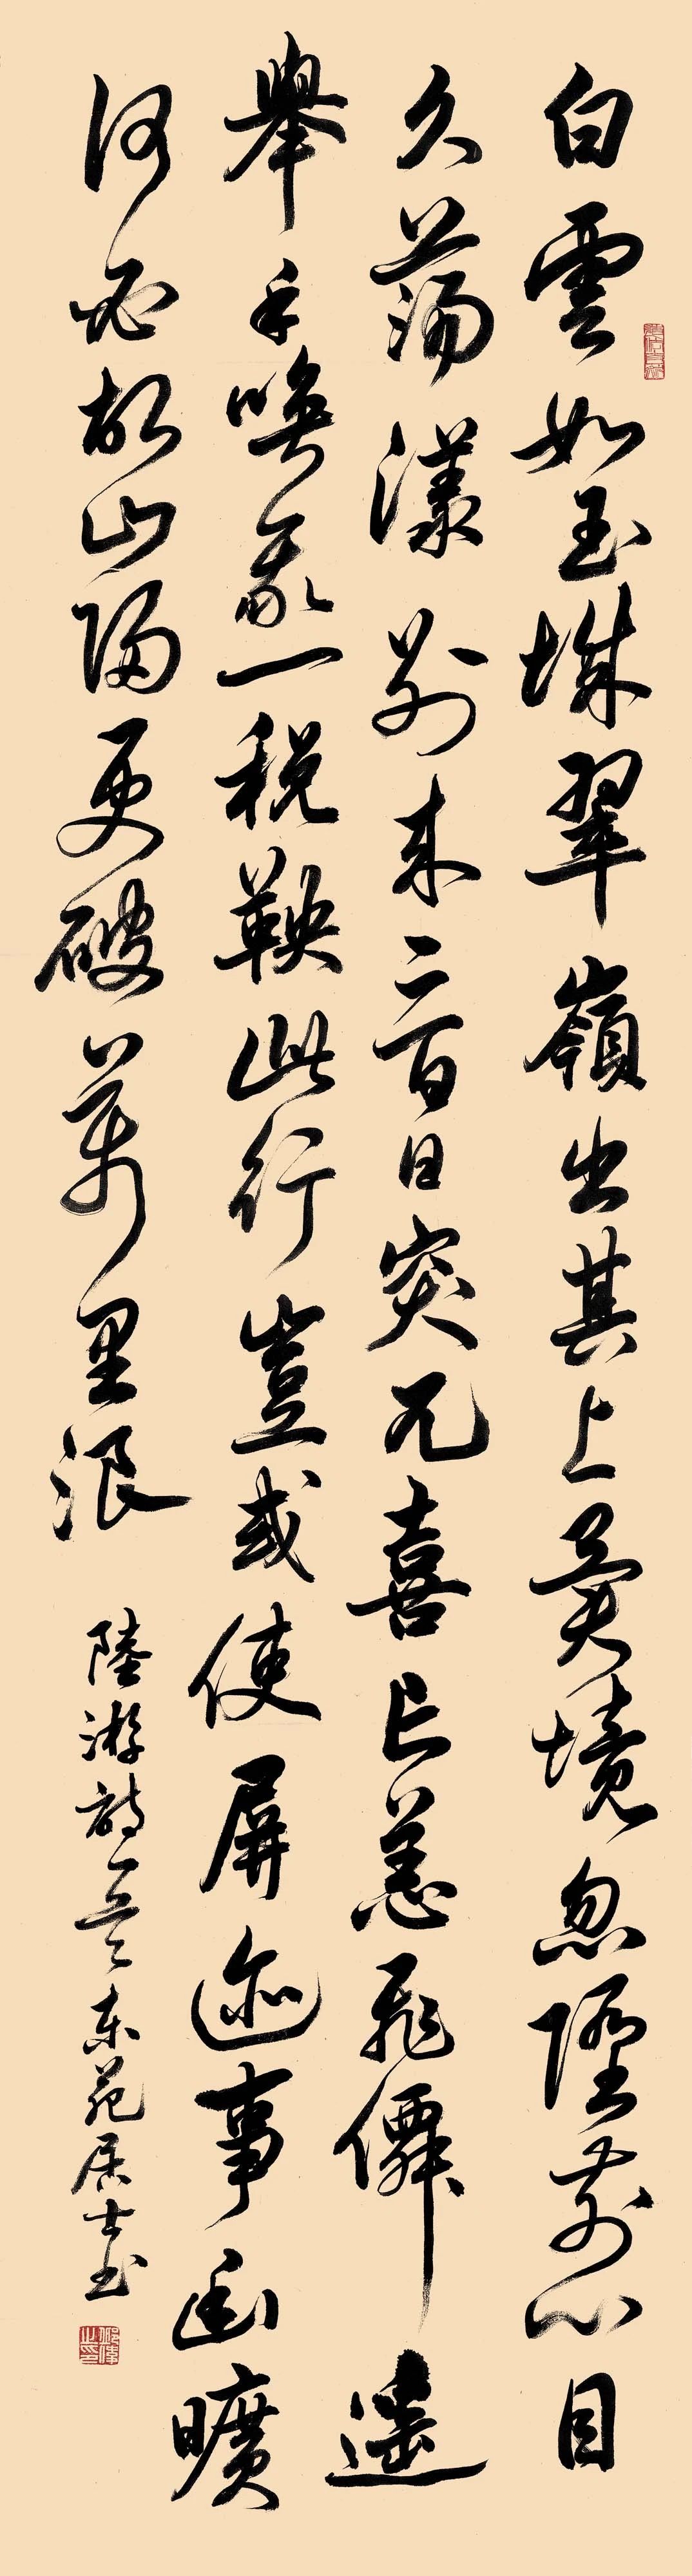 白雲如玉城翠嶺出其上異境忽墮前心目
久蕩漾別来二百日突兀喜亡恙飛僊遥
舉手喚我一税鞅此行豈或使屏迹事幽曠
何必故山歸更破萬里浪
陸游詩一首東苑居士書